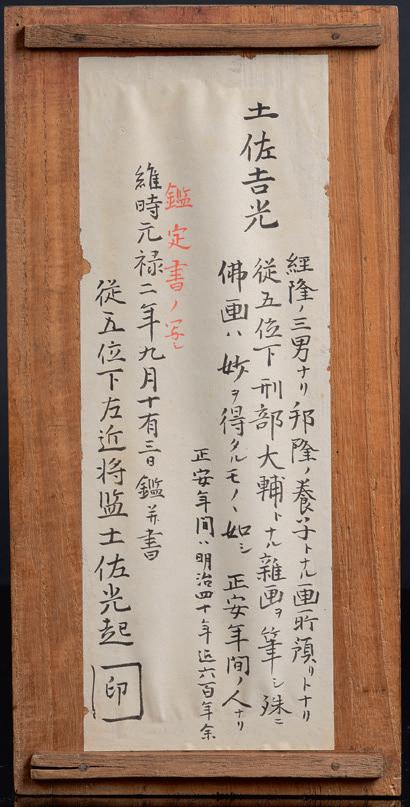 土佐吉光
經隆ノ三男ナリ邦隆ノ養子トナル画所預リトナリ
従五位下刑部大輔トナル雜画ヲ筆シ殊ニ
佛画ハ妙ヲ得タルモノヽ如シ 正安年間ノ人ナリ
正安年間ハ明治四十年迄六百年余
鑑定書ノ写し
維時元禄二年九月十有三日鑑并書
従五位下左近将監土佐光起
印